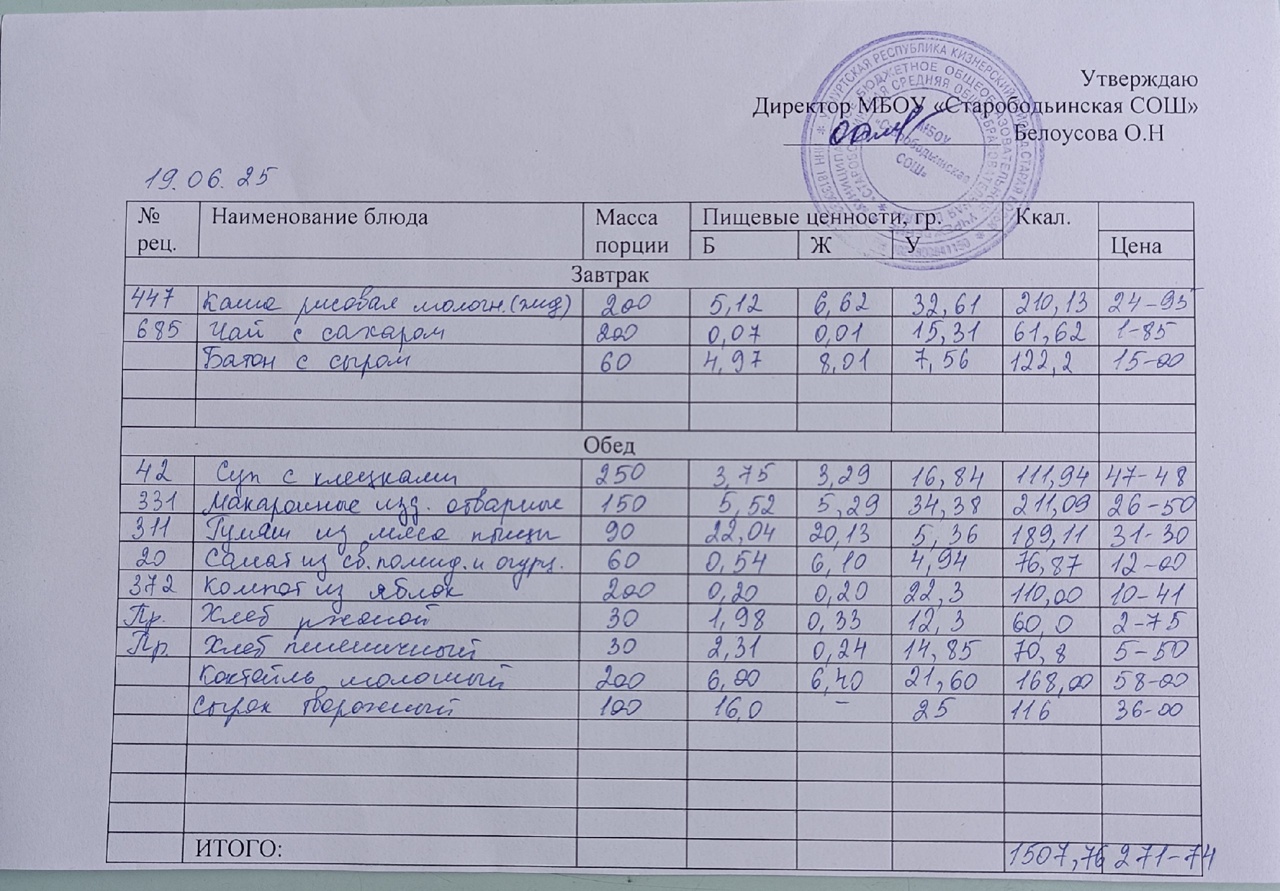 Утверждаю
Директор МБОУ «Старободьинская СОШ»
Белоусова О.Н
МБОУ «Старободьинская СОШ»
19.06.25
№ рец. Наименование блюда Масса порции Пищевые ценности, гр. Ккал.
Б Ж У Цена
Завтрак
447 Каша рисовая молочн.(жид) 200 5,12 6,62 32,61 210,13 24-95
685 Чай с сахаром 200 0,07 0,01 15,31 61,62 1-85
Батон с сыром 60 4,97 8,01 7,56 122,2 15-00
Обед
42 Суп с клецками 250 3,75 3,29 16,84 111,94 47-48
331 Макаронные изд. отварные 150 5,52 5,29 34,38 211,09 26-50
311 Гуляш из мяса птицы 90 22,04 20,13 5,36 189,11 31-30
20 Салат из св.помид.и огурц. 60 0,54 6,10 4,94 76,87 12-00
372 Компот из яблок 200 0,20 0,20 22,3 110,00 10-41
Пр. Хлеб ржаной 30 1,98 0,33 12,3 60,0 2-75
Пр. Хлеб пшеничный 30 2,31 0,24 14,85 70,8 5-50
Коктейль молочный 200 6,00 6,40 21,60 168,00 58-00
Сырок творожный 100 16,0 – 25 116 36-00
ИТОГО: 1507,76 271-74